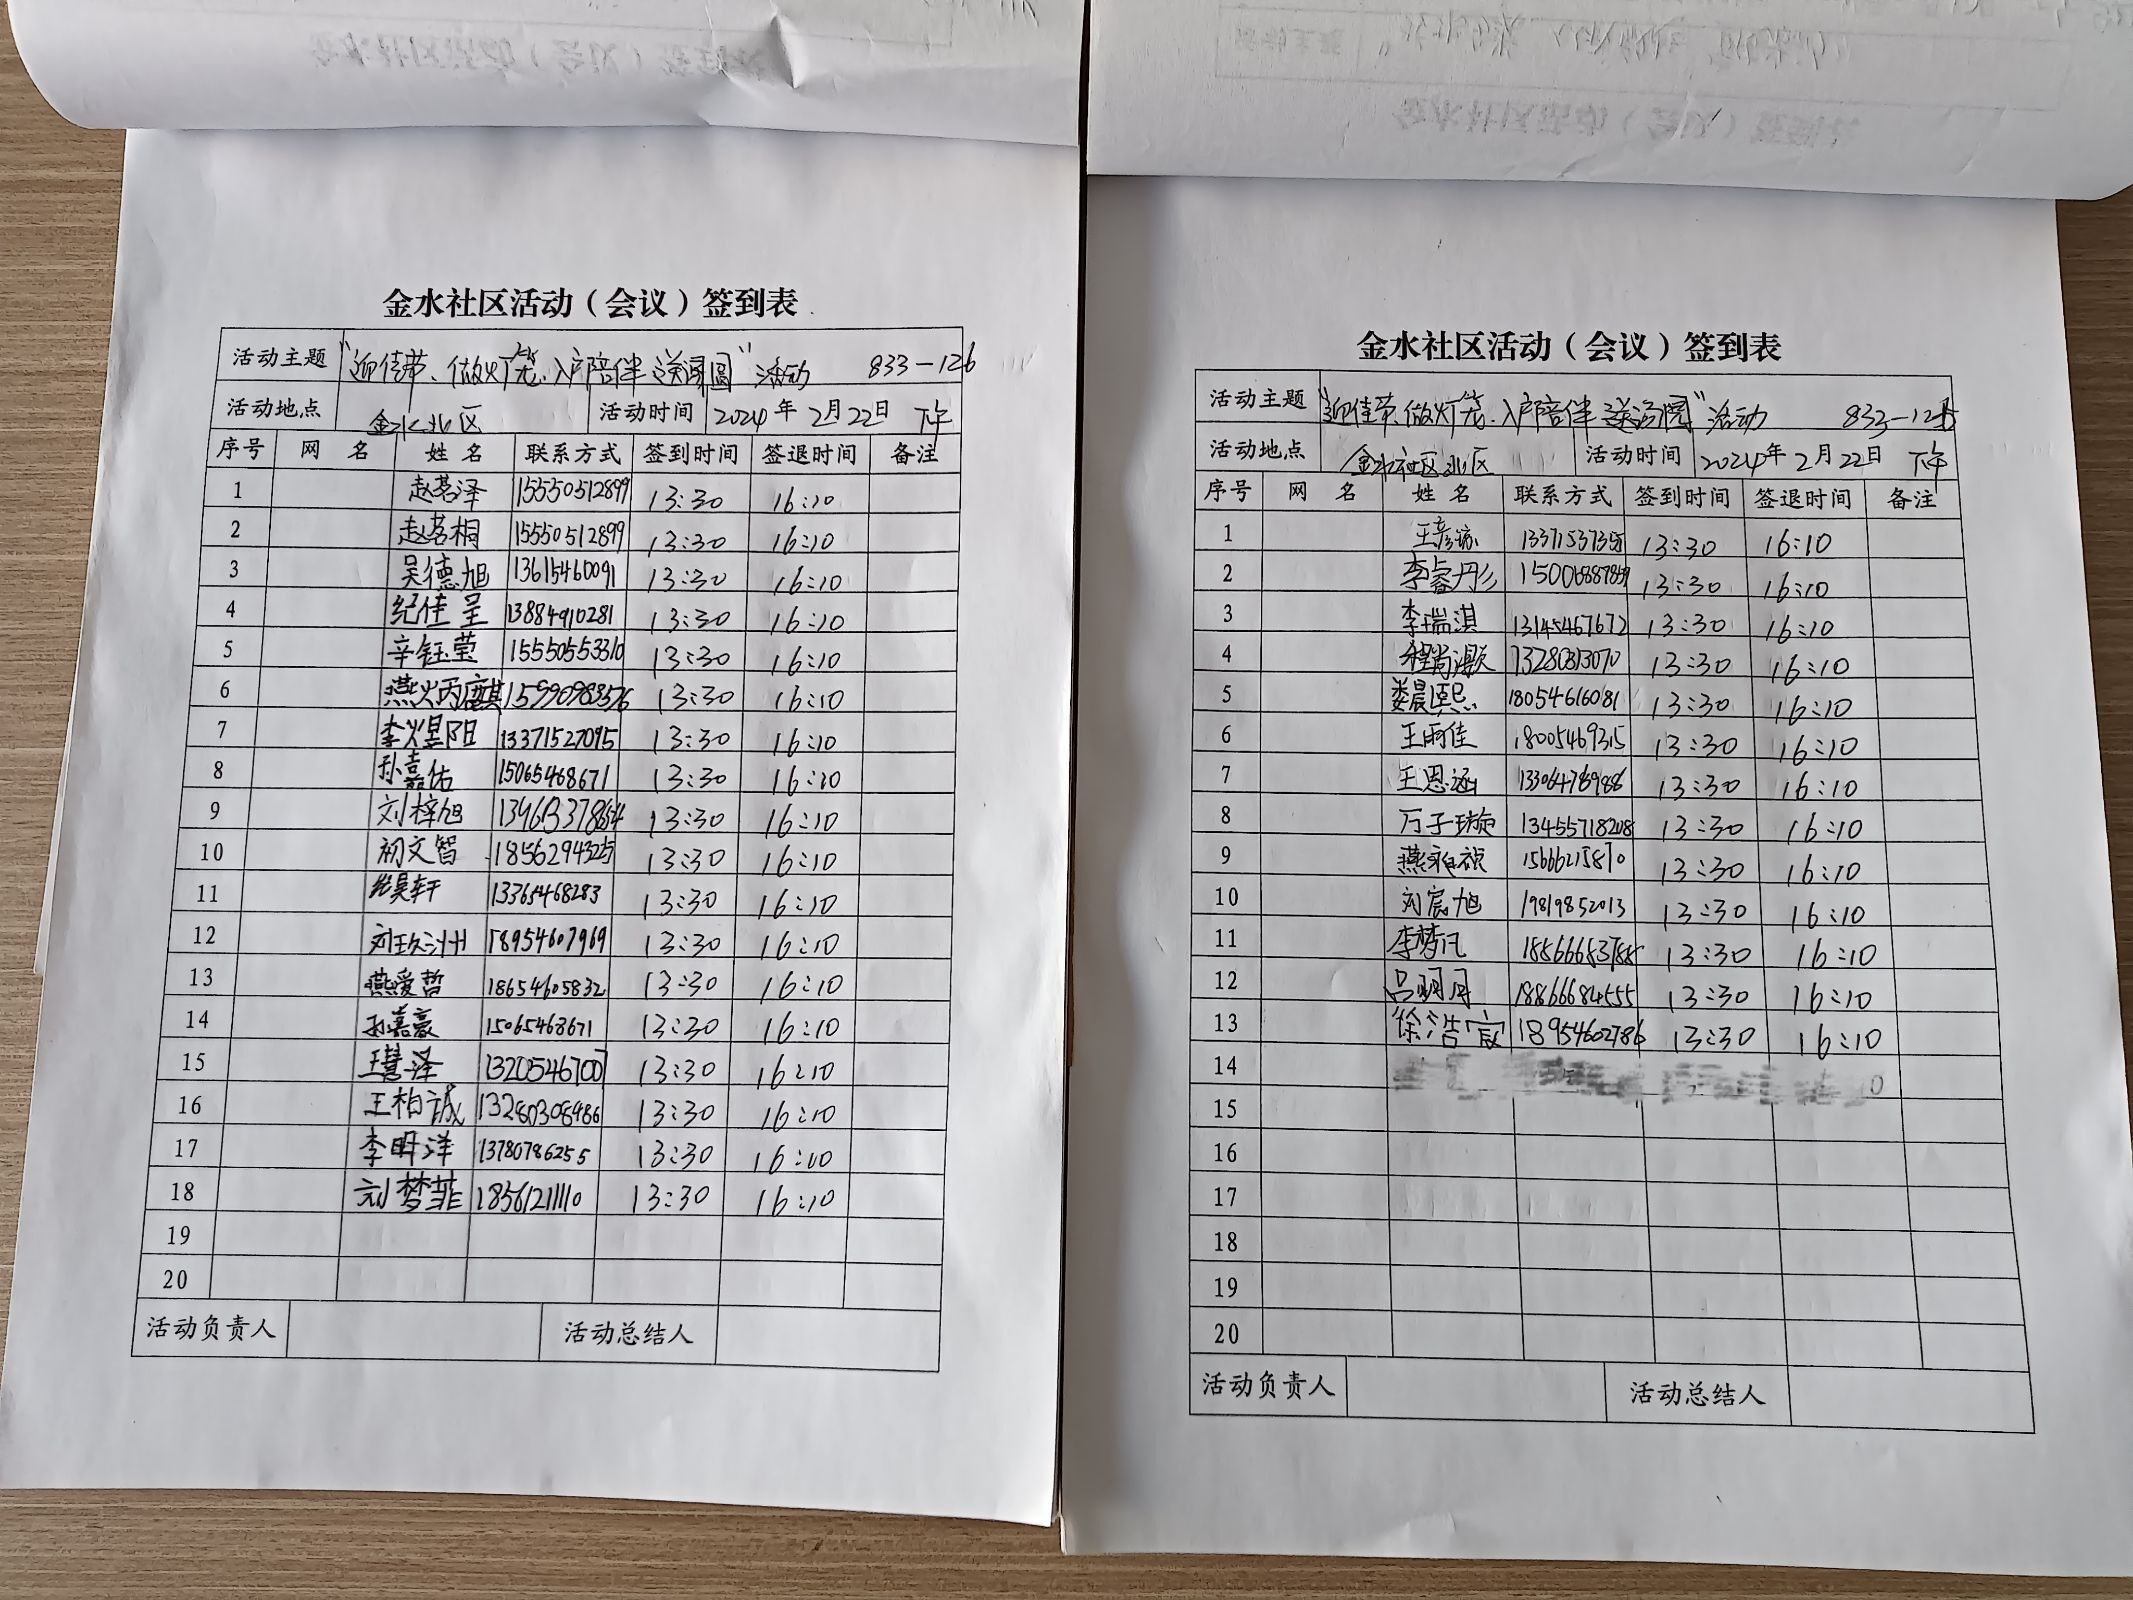 金水社区活动（会议）签到表
活动主题 “迎佳节、做灯笼、入户陪伴送团圆”活动 833-126
活动地点 金水北区 活动时间 2024年2月22日 下午
序号 网名 姓名 联系方式 签到时间 签退时间 备注
1 赵茗泽 15550512899 13:30 16:10
2 赵茗桐 15550512899 13:30 16:10
3 吴德旭 13615460091 13:30 16:10
4 纪佳呈 13884910281 13:30 16:10
5 辛钰莹 15550553310 13:30 16:10
6 燕炳麒 15990983576 13:30 16:10
7 李煜阳 13371527095 13:30 16:10
8 孙嘉佑 15065468671 13:30 16:10
9 刘梓旭 13:30 16:10
10 初文智 1856294325 13:30 16:10
11 张昊轩 13365468283 13:30 16:10
12 刘玖洲 18954607969 13:30 16:10
13 燕爱哲 18654605832 13:30 16:10
14 孙嘉豪 15065468671 13:30 16:10
15 王慧泽 13205467007 13:30 16:10
16 王柏诚 13280308486 13:30 16:10
17 李明洋 13780786255 13:30 16:10
18 刘梦菲 18561211110 13:30 16:10
19
20
活动负责人 活动总结人
金水社区活动（会议）签到表
活动主题 “迎佳节、做灯笼、入户陪伴送汤圆”活动
活动地点 金水社区北区 活动时间 2024年2月22日 下午
序号 网名 姓名 联系方式 签到时间 签退时间 备注
1 13:30 16:10
2 李睿彤 13:30 16:10
3 李瑞淇 13145467672 13:30 16:10
4 程尚灏 13280313070 13:30 16:10
5 娄晨熙 18054616081 13:30 16:10
6 王雨佳 18005469315 13:30 16:10
7 王恩涵 13:30 16:10
8 万子璇 13455718208 13:30 16:10
9 15666215870 13:30 16:10
10 刘宸旭 19819852013 13:30 16:10
11 李梦凡 18866683788 13:30 16:10
12 吕明月 18866684555 13:30 16:10
13 徐浩宸 18954602786 13:30 16:10
14
15
16
17
18
19
20
活动负责人 活动总结人